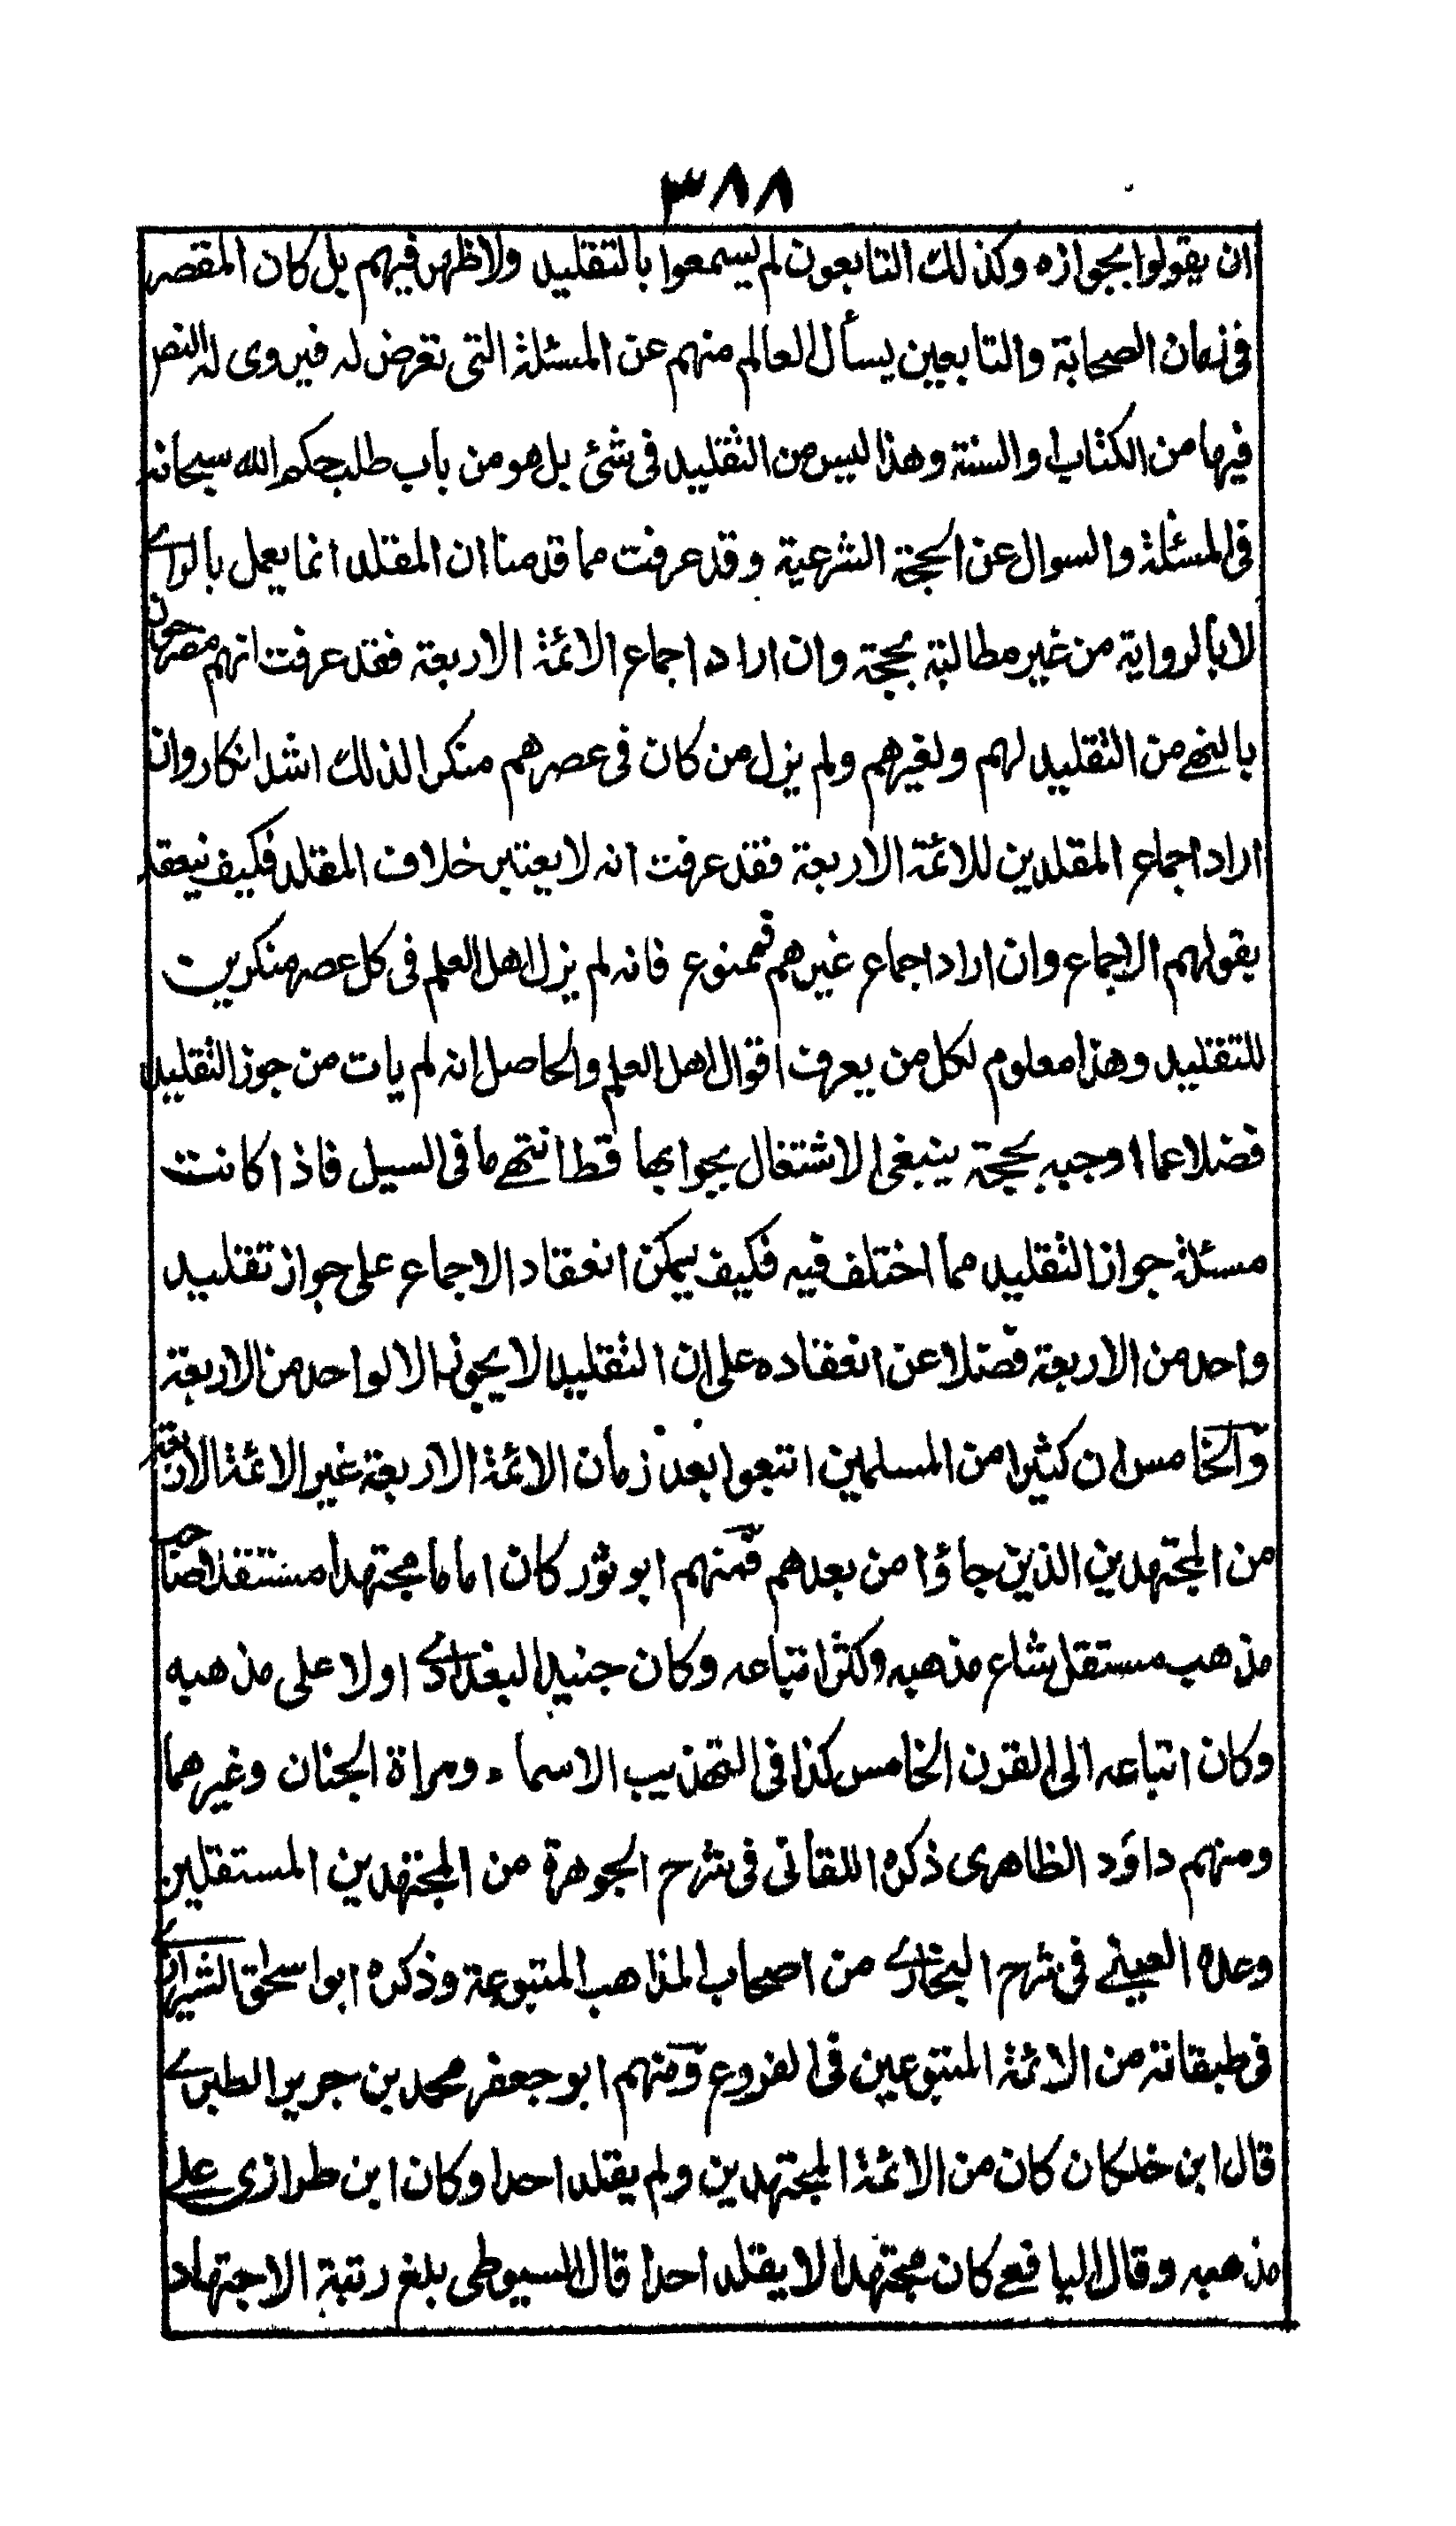 ٣٨٨
ان يقولوا بجوازه وكذلك التابعون لم يسمعوا بالتقليد ولاظهر فيهم بل كان المقصر
فى زمان الصحابة والتابعين يسأل العالم منهم عن المسئلة التى تعرض له فيروى له النص
فيها من الكتاب او السنة وهذا ليس من التقليد فى شئ بل هو من باب طلب حكم الله سبحانه
فى المسئلة والسوال عن الحجة الشرعية وقد عرفت مما قدمنا ان المقلد انما يعمل بالراے
لا بالرواية من غير مطالبة بحجة وان اراد اجماع الائمة الاربعة فقد عرفت انهم مصرحون
بالنهے من التقليد لهم ولغيرهم ولم يزل من كان فى عصرهم منكرا لذلك اشد انكار وان
اراد اجماع المقلدين للائمة الاربعة فقد عرفت انه لا يعتبر خلاف المقلد فكيف ينعقد
بقولهم الاجماع وان اراد اجماع غيرهم فممنوع فانه لم يزل اهل العلم فى كل عصر منكرين
للتقليد وهذا معلوم لكل من يعرف اقوال اهل العلم والحاصل انه لم يات من جوز التقليد
فضلا عما اوجبه بحجة ينبغى الاشتغال بجوابها قط انتهے ما فى السيل فاذا كانت
مسئلة جواز التقليد مما اختلف فيه فكيف يمكن انعقاد الاجماع على جواز تقليد
واحد من الاربعة فضلا عن انعقاده على ان التقليد لا يجوز الا لواحد من الاربعة
والخامس ان كثيرا من المسلمين اتبعوا بعد زمان الائمة الاربعة غير الائمة الاربعة
من المجتهدين الذين جاؤا من بعدهم فمنهم ابو ثور كان اماما مجتهدا مستقلا صاحب
مذهب مستقل شاع مذهبه وكثر اتباعه وكان جنيد البغدادے اولا على مذهبه
وكان اتباعه الى القرن الخامس كذا فى التهذيب الاسماء ومراة الجنان وغيرهما
ومنهم داؤد الظاهرى ذكره اللقانى فى شرح الجوهرة من المجتهدين المستقلين
وعده العينے فى شرح البخارے من اصحاب المذاهب المتبوعة وذكره ابو اسحٰق الشيرازے
فى طبقاته من الائمة المتبوعين فى الفروع ومنهم ابو جعفر محمد بن جرير الطبرے
قال ابن خلكان كان من الائمة المجتهدين ولم يقلد احدا وكان ابن طرازى علے
مذهبه وقال اليافعے كان مجتهدا لا يقلد احدا قال السيوطى بلغ رتبة الاجتهاد